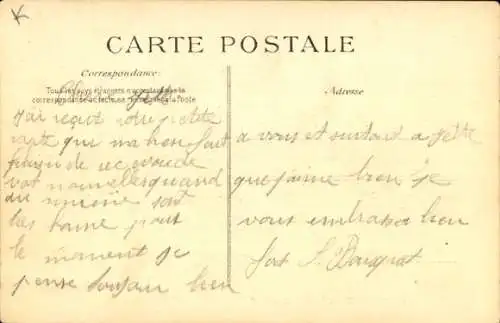 CARTE POSTALE
Correspondance:
Tous les pays étrangers n'acceptant pas la
correspondance au recto, se renseigner à la Poste
Adresse
Chère Jette
J'ai reçut votre petite
carte qui ma bien fait
de recevoir de
vot nouvelles quand
sont
tres bonne pour
le moment je
pense toujour bien
a vous et surtout a Jette
que j'aime bien je
vous embrasse bien
fort